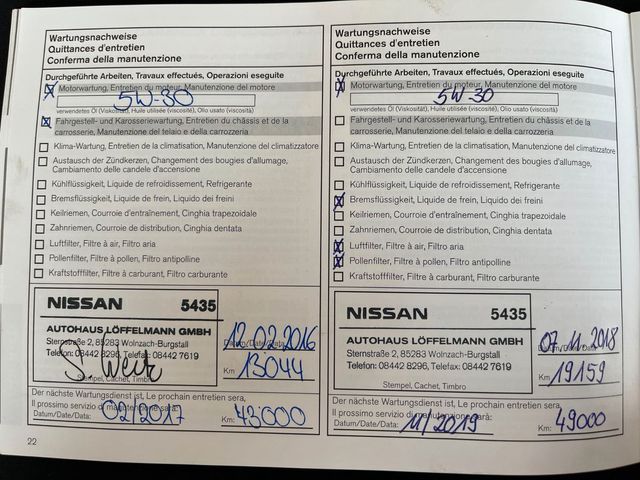 Wartungsnachweise
Quittances d'entretien
Conferma della manutenzione
Durchgeführte Arbeiten, Travaux effectués, Operazioni eseguite
X Motorwartung, Entretien du moteur, Manutenzione del motore
5W-30
verwendetes Öl (Viskosität), Huile utilisée (viscosité), Olio usato (viscosità)
X Fahrgestell- und Karosseriewartung, Entretien du châssis et de la
carrosserie, Manutenzione del telaio e della carrozzeria
Klima-Wartung, Entretien de la climatisation, Manutenzione del climatizzatore
Austausch der Zündkerzen, Changement des bougies d'allumage,
Cambiamento delle candele d'accensione
Kühlflüssigkeit, Liquide de refroidissement, Refrigerante
Bremsflüssigkeit, Liquide de frein, Liquido dei freini
Keilriemen, Courroie d'entraînement, Cinghia trapezoidale
Zahnriemen, Courroie de distribution, Cinghia dentata
Luftfilter, Filtre à air, Filtro aria
Pollenfilter, Filtre à pollen, Filtro antipolline
Kraftstofffilter, Filtre à carburant, Filtro carburante
NISSAN 5435
AUTOHAUS LÖFFELMANN GMBH
Sternstraße 2, 85283 Wolnzach-Burgstall
Telefon: 08442 8296, Telefax: 08442 7619
Stempel, Cachet, Timbro
12.02.2016
Datum/Date/Data:
Km 13044
Der nächste Wartungsdienst ist, Le prochain entretien sera,
Il prossimo servizio di manutenzione sarà:
Datum/Date/Data: 02/2017 Km: 43000
22
Wartungsnachweise
Quittances d'entretien
Conferma della manutenzione
Durchgeführte Arbeiten, Travaux effectués, Operazioni eseguite
X Motorwartung, Entretien du moteur, Manutenzione del motore
5W-30
verwendetes Öl (Viskosität), Huile utilisée (viscosité), Olio usato (viscosità)
Fahrgestell- und Karosseriewartung, Entretien du châssis et de la
carrosserie, Manutenzione del telaio e della carrozzeria
Klima-Wartung, Entretien de la climatisation, Manutenzione del climatizzatore
Austausch der Zündkerzen, Changement des bougies d'allumage,
Cambiamento delle candele d'accensione
Kühlflüssigkeit, Liquide de refroidissement, Refrigerante
X Bremsflüssigkeit, Liquide de frein, Liquido dei freini
Keilriemen, Courroie d'entraînement, Cinghia trapezoidale
Zahnriemen, Courroie de distribution, Cinghia dentata
X Luftfilter, Filtre à air, Filtro aria
X Pollenfilter, Filtre à pollen, Filtro antipolline
Kraftstofffilter, Filtre à carburant, Filtro carburante
NISSAN 5435
AUTOHAUS LÖFFELMANN GMBH
Sternstraße 2, 85283 Wolnzach-Burgstall
Telefon: 08442 8296, Telefax: 08442 7619
Stempel, Cachet, Timbro
07.11.2018
Datum/Date/Data:
Km 19159
Der nächste Wartungsdienst ist, Le prochain entretien sera,
Il prossimo servizio di manutenzione sarà:
Datum/Date/Data: 11/2019 Km: 49000